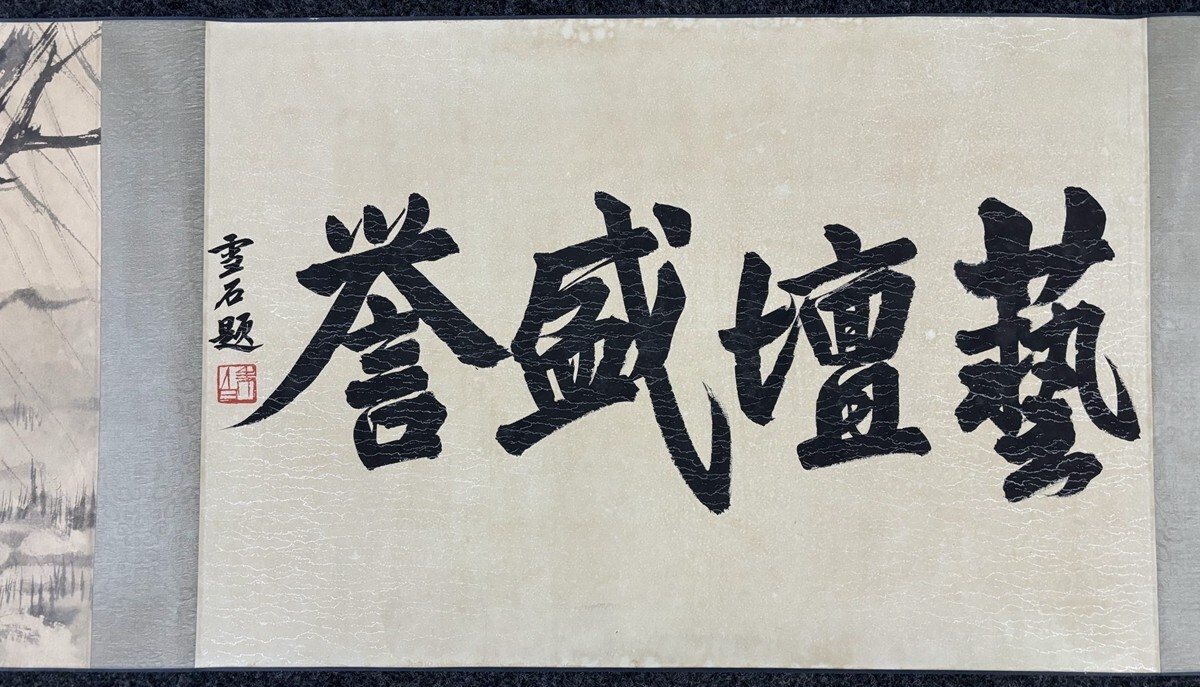 藝壇盛誉
雪石题